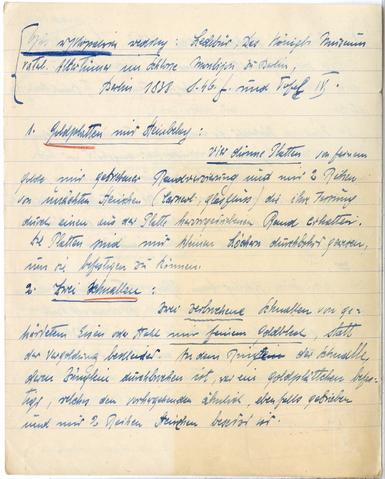 wykopalisk według: Ledebur, Das Königl. Museum
vaterl. Altertümer im Schlosse Monbijou zu Berlin,
Berlin 1838 S. 46 f. und Tafel IV.
1. Goldplatten mit Steinbelag:
Vier dünne Platten von feinem
Golde mit getriebener Randverzierung und mit 2 Reihen
von unechten Steinchen (Carneol, Glasfluss) die ihre Fassung
durch einen aus der Platte herausgetriebenen Rand erhalten.
Die Platten sind mit kleinen Löchern durchbohrt gewesen,
um sie befestigen zu können.
2. Zwei Schnallen:
Zwei zerbrochene Schnallen von ge-
härtetem Eisen oder Stahl mit feinem Goldblech, statt
der Vergoldung bekleidet. An dem Ringe der Schnalle,
deren Zünglein durchbrochen ist, war ein Goldplättchen befe-
stigt, welches den vorhergehenden ähnlich, ebenfalls getrieben
und mit 2 Reihen Steinchen besetzt ist.